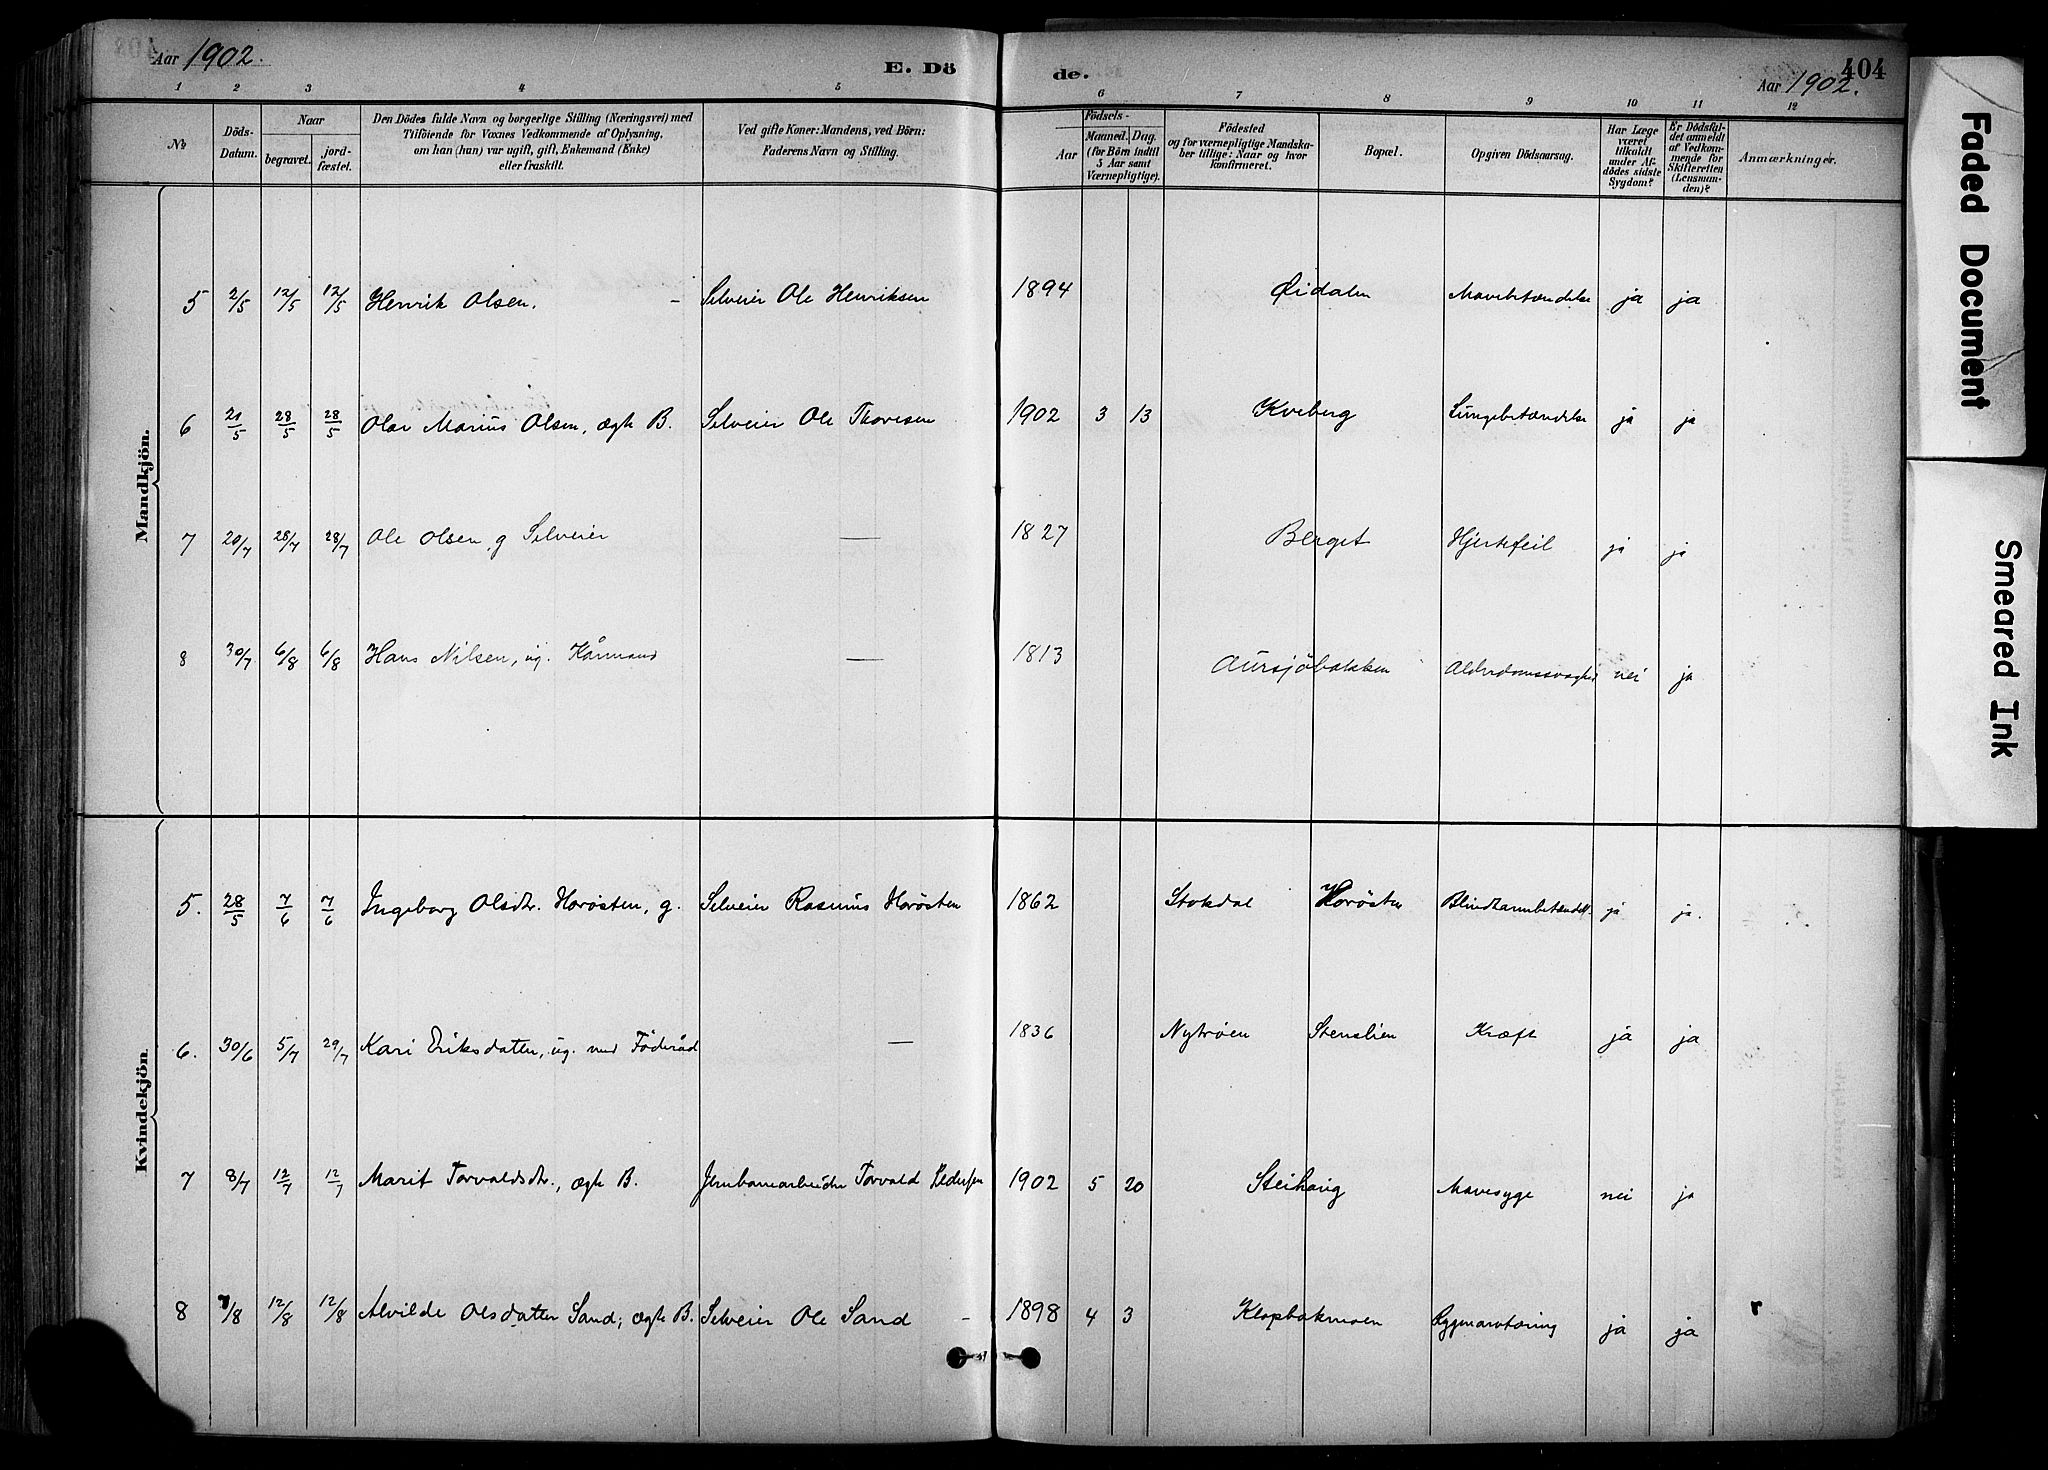 404
Aar 1902.
E. Dö
de.
Aar 1902.
1 2 3 4 5 6 7 8 9 10 11 12
№
Döds-Datum.
Naar
begravet.
jord-fæstet.
Den Dödes fulde Navn og borgerlige Stilling (Næringsvei) med
Tilföiende for Voxnes Vedkommende af Oplysning,
om han (hun) var ugift, gift, Enkemand (Enke)
eller fraskilt.
Ved gifte Koner: Mandens, ved Börn:
Faderens Navn og Stilling.
Födsels-
Aar
Maaned. Dag.
(for Börn indtil
5 Aar samt
Værnepligtige).
Födested
og for værnepligtige Mandska-
ber tillige: Naar og hvor
konfirmeret.
Bopæl.
Opgiven Dödsaarsag.
Har Læge
været
tilkaldt
under Af-
dödes sidste
Sygdom?
Er Dödsfal-
det anmeldt
af Vedkom-
mende for
Skifteretten
(Lensman-
den)?
Anmærkninger.
Mandkjön.
5 2/5 12/5 12/5 Henrik Olsen. - Selveier Ole Henriksen 1894 Øidalen Mavebetændelse ja ja
6 21/5 28/5 28/5 Olav Marius Olsen, ægte B. Selveier Ole Thoresen 1902 3 13 Kveberg Lungebetændelse ja ja
7 20/7 28/7 28/7 Ole Olsen, g Selveier — 1827 Berget Hjertefeil ja ja
8 30/7 6/8 6/8 Hans Nilsen, ug. Kårmand — 1813 Aursjöbakken Alderdomssvaghed nei ja
Kvindekjön.
5. 28/5 7/6 7/6 Ingeborg Olsdtr. Horösten, g. Selveier Rasmus Horösten 1862 Stokdal Horösten Blindtarmbetændels. ja ja.
6. 30/6 5/7 29/7 Kari Eriksdatter, ug. med Föderåd — 1836 Nytrøen Stenslien Kræft ja ja
7 8/7 12/7 12/7 Marit Torvaldsdtr., ægte B. Jernbanearbeider Torvald Pedersen 1902 5 20 Steihaug Mavesyge nei ja
8 7/8 12/8 12/8 Alvilde Olsdatter Sand, ægte B. Selveier Ole Sand - 1898 4 3 Klopbakmoen Rygmarvtæring ja ja
Faded Document
Smeared Ink